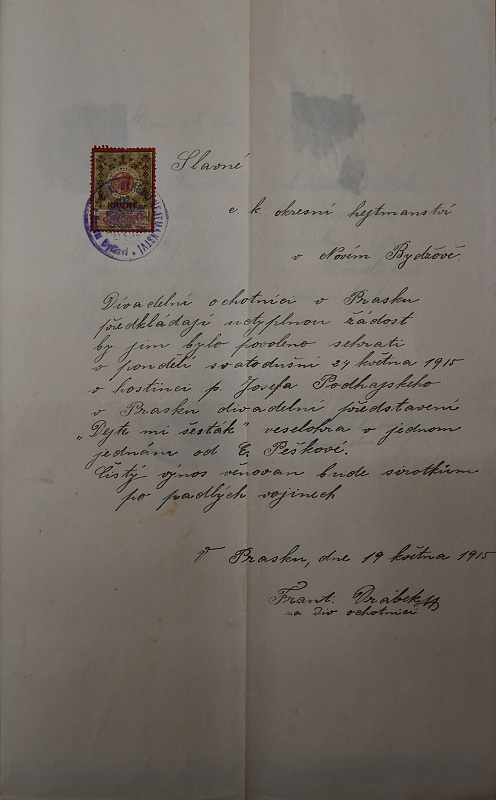 Slavné
c. k. okresní hejtmanství
v Novém Bydžově
Divadelní ochotníci v Prasku
předkládají uctyplnou žádost
by jim bylo povoleno sehrati
v pondělí svatodušní 24 května 1915
v hostinci p. Josefa Podhajského
v Prasku divadelní představení
„Dejte mi šesták" veselohra v jednom
jednám od E. Peškové.
Čistý výnos věnovan bude sirotkům
po padlých vojínech
V Prasku, dne 19 května 1915
Frant. Vrábek
za div ochotníci
1
KRONE